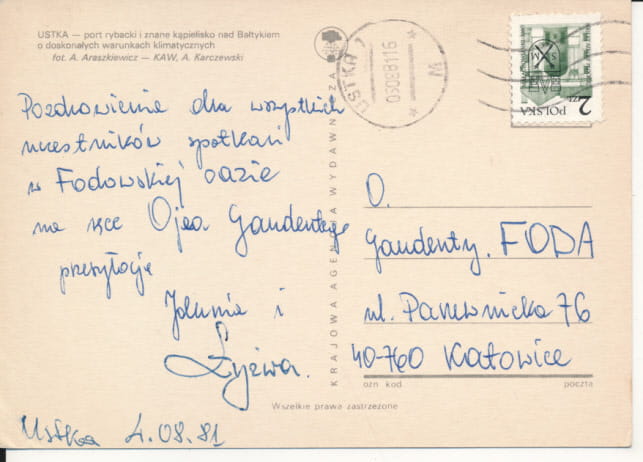 USTKA — port rybacki i znane kąpielisko nad Bałtykiem
o doskonałych warunkach klimatycznych
fot. A. Araszkiewicz — KAW, A. Karczewski
Pozdrowienia dla wszystkich
uczestników spotkań
w Fodowskiej oazie
na ręce Ojca Gaudentego
przesyłają
Jolunia i
Łyżwa.
Ustka 4.08.81
KRAJOWA AGENCJA WYDAWNICZA
USTKA 1
050881 16
M
2 ZŁ
POLSKA
O.
Gaudenty. FODA
ul. Panewnicka 76
40-760 Katowice
ozn kod poczta
Wszelkie prawa zastrzeżone